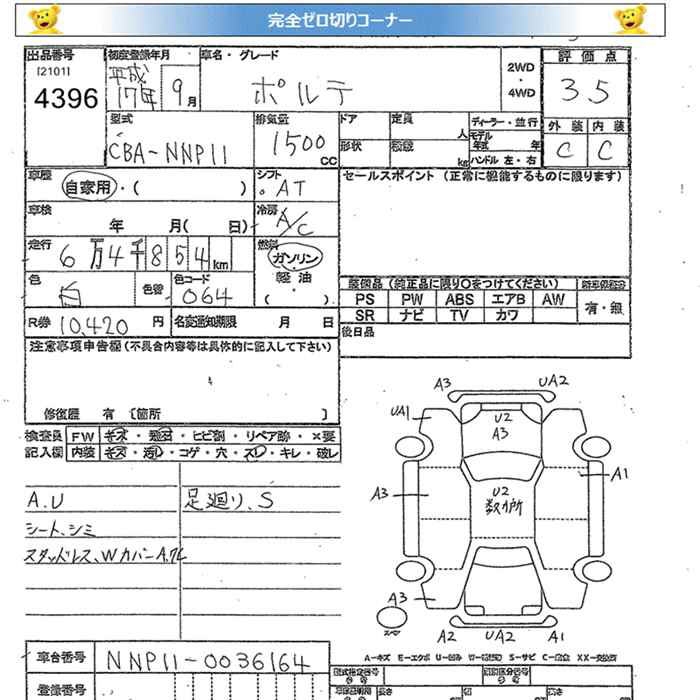 完全ゼロ切りコーナー
出品番号 初度登録年月 車名・グレード 評価点
[2101] 平成 2WD
4396 17年 9月 ポルテ ・ 4WD 3.5
型式 排気量 ドア 定員 ディーラー・並行 外装 内装
CBA-NNP11 1500cc 形状 人 モデル 年式 年 C C
kg ハンドル 左・右
車歴 自家用・( ) シフト ・AT セールスポイント (正常に機能するものに限ります)
車検 年 月( 日) 冷房 A/C
走行 6万4千854km 燃料 ガソリン
色 白 色替 色コード 064 軽油 ( )
装備品 (純正品に限り○をつけてください)
PS PW ABS エアB AW 有・無
SR ナビ TV カワ
R券 10,420 円 名変通知期限 月 日 後日品
注意事項申告欄(不具合内容等は具体的に記入して下さい)
修復歴 有 〔箇所 〕
検査員 FW キズ・飛石・ヒビ割・リペア跡・×要
記入欄 内装 キズ・汚レ・コゲ・穴・スレ・キレ・破レ
A.U 足廻り、S
シート、シミ
スタッドレス、Wカバー
A3 UA2
UA1 U2
A3
A1
A3 U2
数カ所
A3
A2 UA2 A1
A-キズ E-エクボ U-凹み S-サビ
車台番号 NNP11-0036164
登録番号 型式指定番号 類別区分番号
長さ 幅 高さ